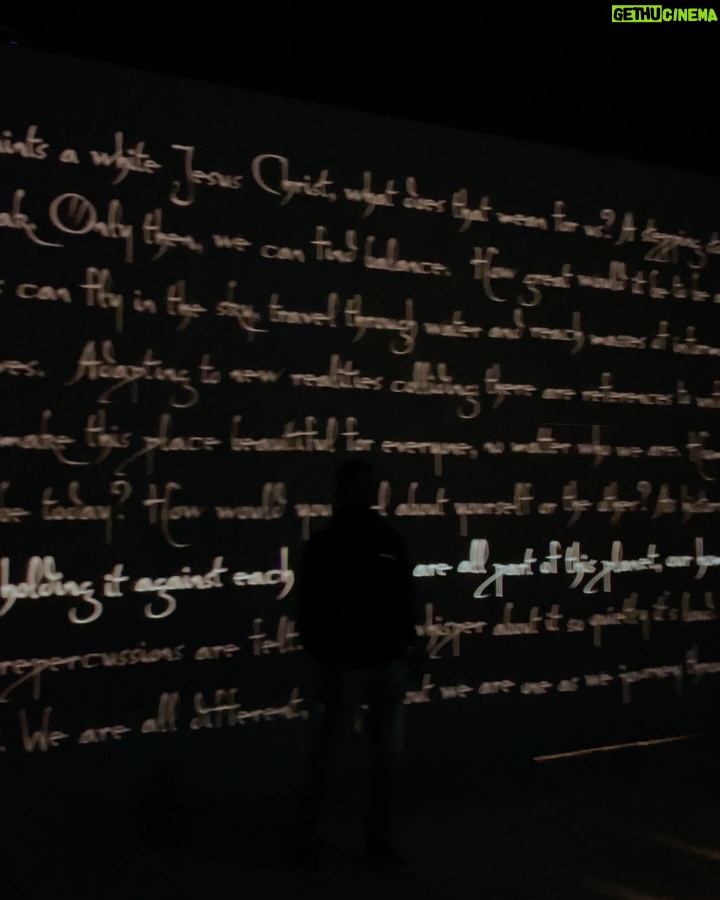 GETHUCINEMA
a white Jesus Christ, what does that mean for us? A stepping
Only then, we can find balance. How great would it be to be
can fly in the sky, travel through water and reach masses of
Adapting to new realities colliding there are references
make this place beautiful for everyone, no matter who we are.
today? How would you about yourself or the other? A
holding it against each are all part of this planet, our
repercussions are felt whisper about it so quietly it's
We are all different, but we are one as we journey